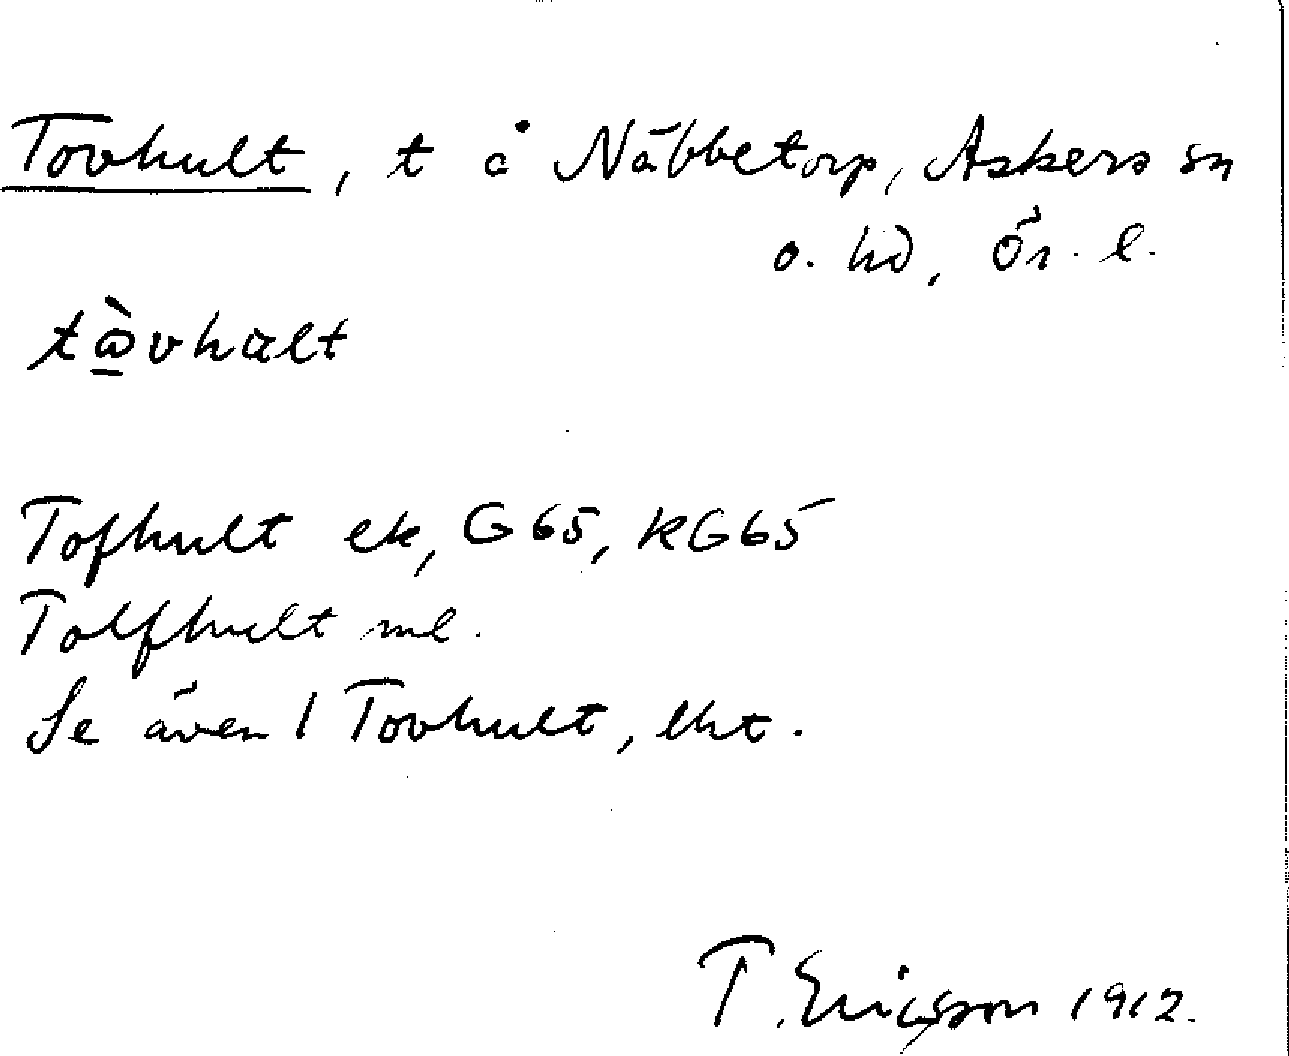 Tovhult, t å Näbbetorp, Askers sn
o. hd, Ör. l.
tòvhalt
Tofhult ek, G65, KG65
Tolfhult ml.
Se även 1 Tovhult, lht.
T. Ericsson 1912.